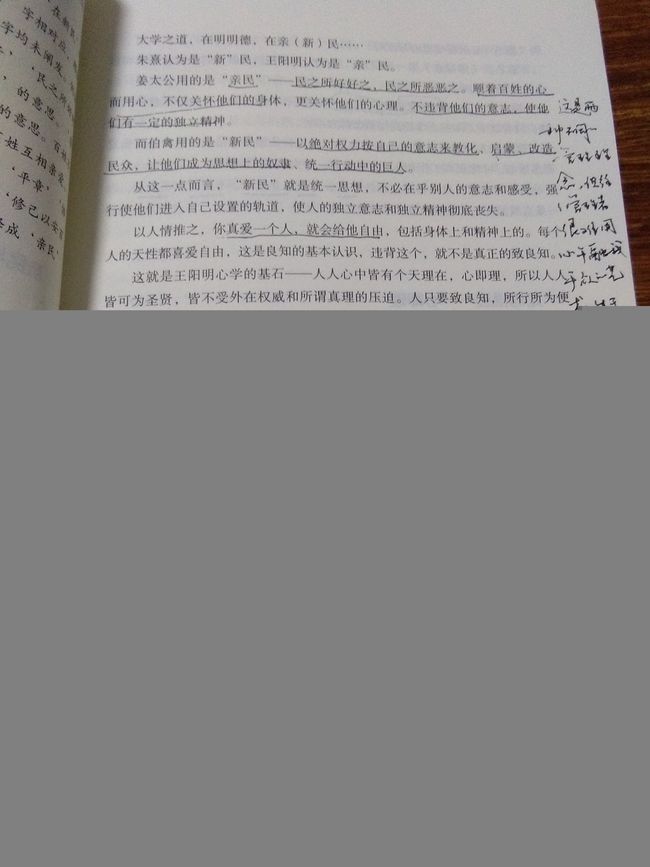 在新民
字相对应，
字均未阐发，
民之所
的意思。
的意思。百
姓互相亲爱
‘平章’
‘修己以安百
成‘亲民’
大学之道，在明明德，在亲（新）民……
朱熹认为是“新”民，王阳明认为是“亲”民。
姜太公用的是“亲民”——民之所好好之，民之所恶恶之。顺着百姓的心
而用心，不仅关怀他们的身体，更关怀他们的心理。不违背他们的意志，使他
们有一定的独立精神。
而伯禽用的是“新民”——以绝对权力按自己的意志来教化、启蒙、改造
民众，让他们成为思想上的奴隶、统一行动中的巨人。
从这一点而言，“新民”就是统一思想，不必在乎别人的意志和感受，强
行使他们进入自己设置的轨道，使人的独立意志和独立精神彻底丧失。
以人情推之，你真爱一个人，就会给他自由，包括身体上和精神上的。每个
人的天性都喜爱自由，这是良知的基本认识，违背这个，就不是真正的致良知。
这就是王阳明心学的基石——人人心中皆有个天理在，心即理，所以人人
皆可为圣贤，皆不受外在权威和所谓真理的压迫。人只要致良知，所行所为便
这是两
种不同
管理理
念，但给
管理者